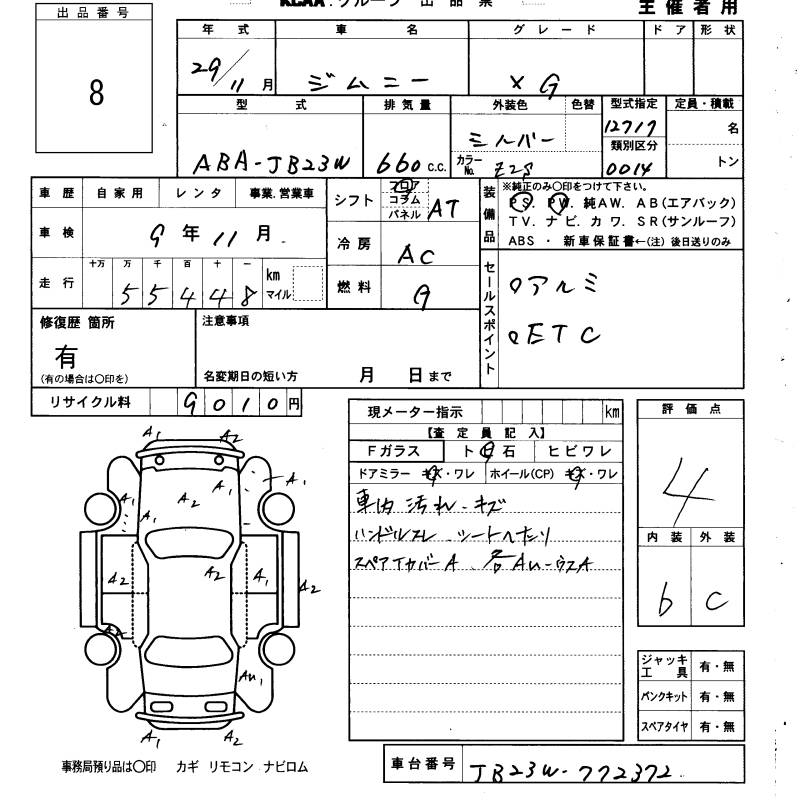 KCAA.グループ 出品票
主催者用
出品番号
8
年式 車名 グレード ドア 形状
29/11月 ジムニー XG
型式 排気量 外装色 色替 型式指定 定員・積載
シルバー 12717 名
類別区分
ABA-JB23W 660 C.C. カラーNo. Z2S 0014 トン
車歴 自家用 レンタ 事業.営業車
車検 9年11月
走行 十万 万 千 百 十 一
55448 km マイル
シフト フロア コラム パネル AT
冷房 AC
燃料 G
装備品 ※純正のみ〇印をつけて下さい。
PS. PW. 純AW. AB(エアバック)
TV. ナビ. カワ. SR(サンルーフ)
ABS ・ 新車保証書←(注) 後日送りのみ
セールスポイント
○アルミ
○ETC
修復歴 箇所
有
(有の場合は〇印を)
注意事項
名変期日の短い方 月 日まで
リサイクル料 9010円
現メーター指示 km
【査定員記入】
Fガラス ト 石 ヒビワレ
ドアミラー キズ・ワレ ホイール(CP) キズ・ワレ
車内汚れ・キズ
ハンドルスレ シートへたり
スペアタイヤカバーA 各AU・ウスA
評価点
4
内装 外装
b C
ジャッキ工具 有・無
パンクキット 有・無
スペアタイヤ 有・無
A1 A2
A1 A2 A1 A1
A1
A2 A2 A1 A2
A2
AU1
A1 A2
事務局預り品は〇印 カギ リモコン ナビロム
車台番号 JB23W-772372